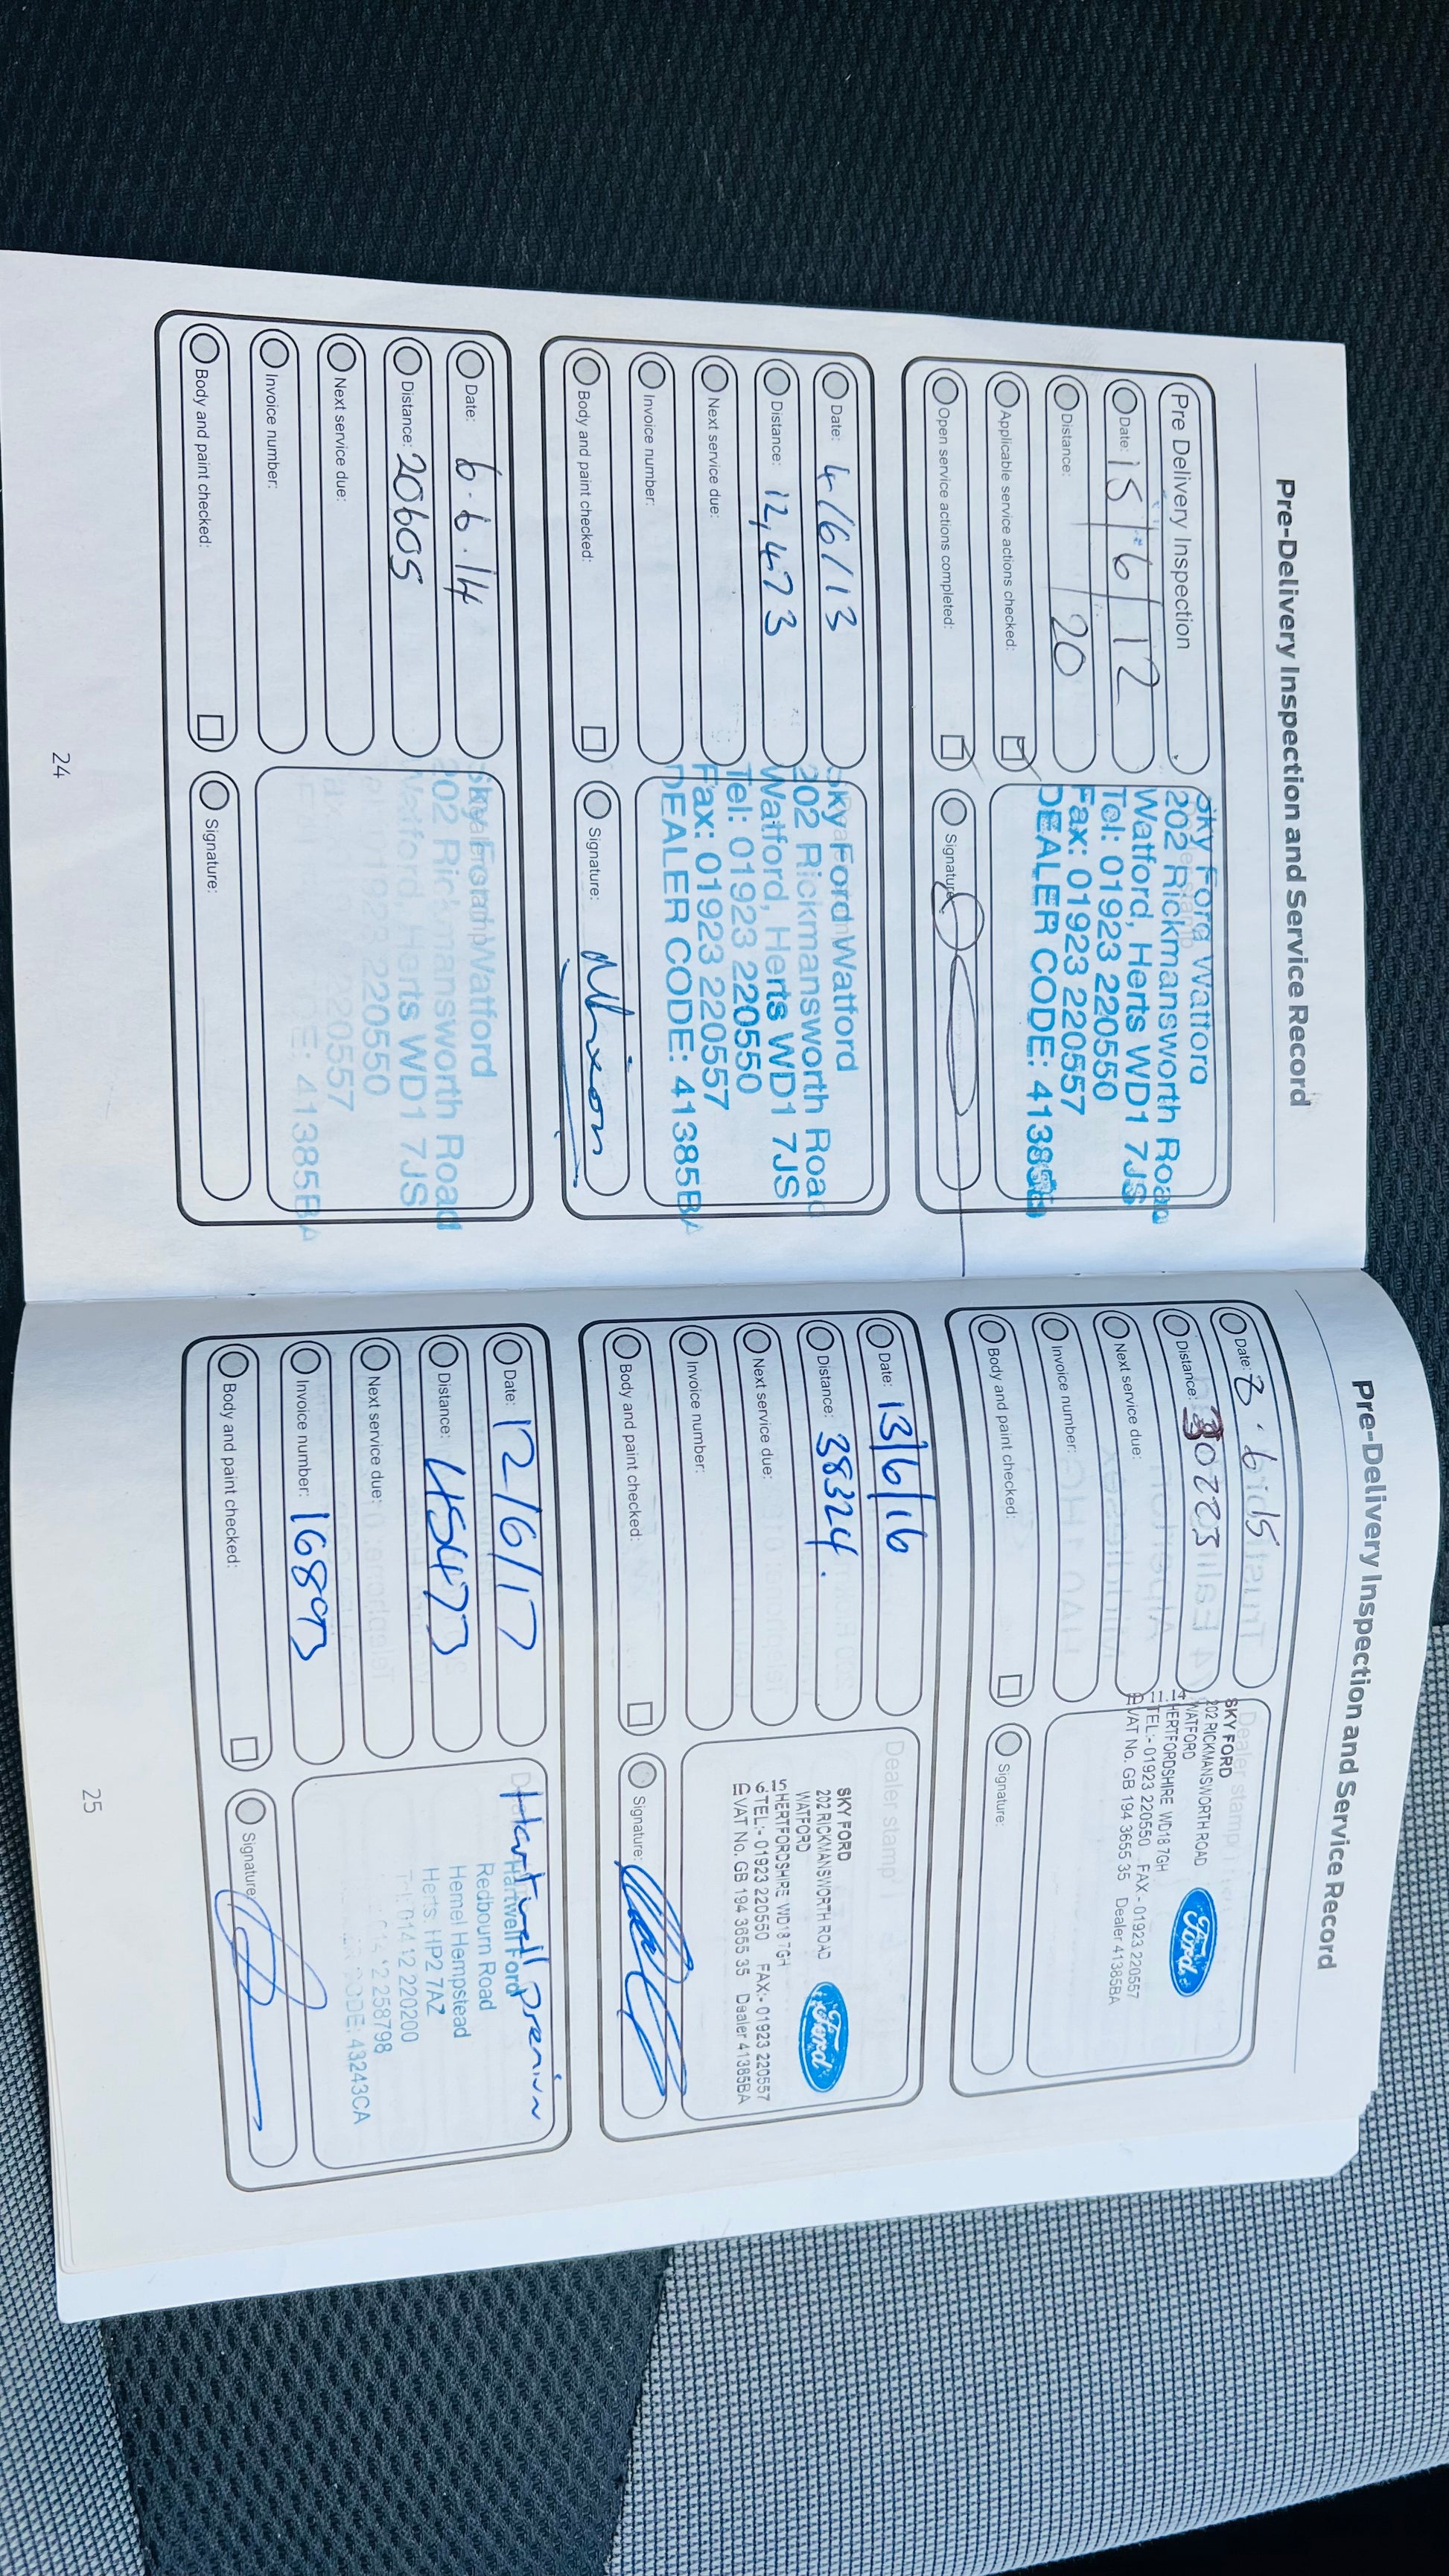 Pre-Delivery Inspection and Service Record
Pre Delivery Inspection
Date: 15/6/12
Distance: 20
Applicable service actions checked:
Open service actions completed:
Sky Ford Watford
202 Rickmansworth Road
Watford, Herts WD1 7JS
Tel: 01923 220550
Fax: 01923 220557
DEALER CODE: 41385
Signature:
Date: 4/6/13
Distance: 12,473
Next service due:
Invoice number:
Body and paint checked:
Sky Ford Watford
202 Rickmansworth Road
Watford, Herts WD1 7JS
Tel: 01923 220550
Fax: 01923 220557
DEALER CODE: 41385BA
Signature:
Date: 6.6.14
Distance: 20605
Next service due:
Invoice number:
Body and paint checked:
Watford
202 Rickmansworth Road
Watford, Herts WD1 7JS
01923 220550
220557
41385BA
Signature:
24
Pre-Delivery Inspection and Service Record
Date: 8.6.15
Distance: 30223
Next service due:
Invoice number:
Body and paint checked:
Dealer stamp
SKY FORD
202 RICKMANSWORTH ROAD
WATFORD
HERTFORDSHIRE WD18 7GH
TEL:- 01923 220550 FAX:- 01923 220557
VAT No. GB 194 3655 35 Dealer 41385BA
Ford
Signature:
Date: 13/6/16
Distance: 38324.
Next service due:
Invoice number:
Body and paint checked:
Dealer stamp
SKY FORD
202 RICKMANSWORTH ROAD
WATFORD
HERTFORDSHIRE WD18 7GH
TEL:- 01923 220550 FAX:- 01923 220557
VAT No. GB 194 3655 35 Dealer 41385BA
Ford
Signature:
Date: 12/6/17
Distance: 45473
Next service due:
Invoice number: 16893
Body and paint checked:
Hartwell
Hartwell Ford
Redbourn Road
Hemel Hempstead
Herts. HP2 7AZ
Tel: 01412 220200
258798
CODE: 43243CA
Signature:
25